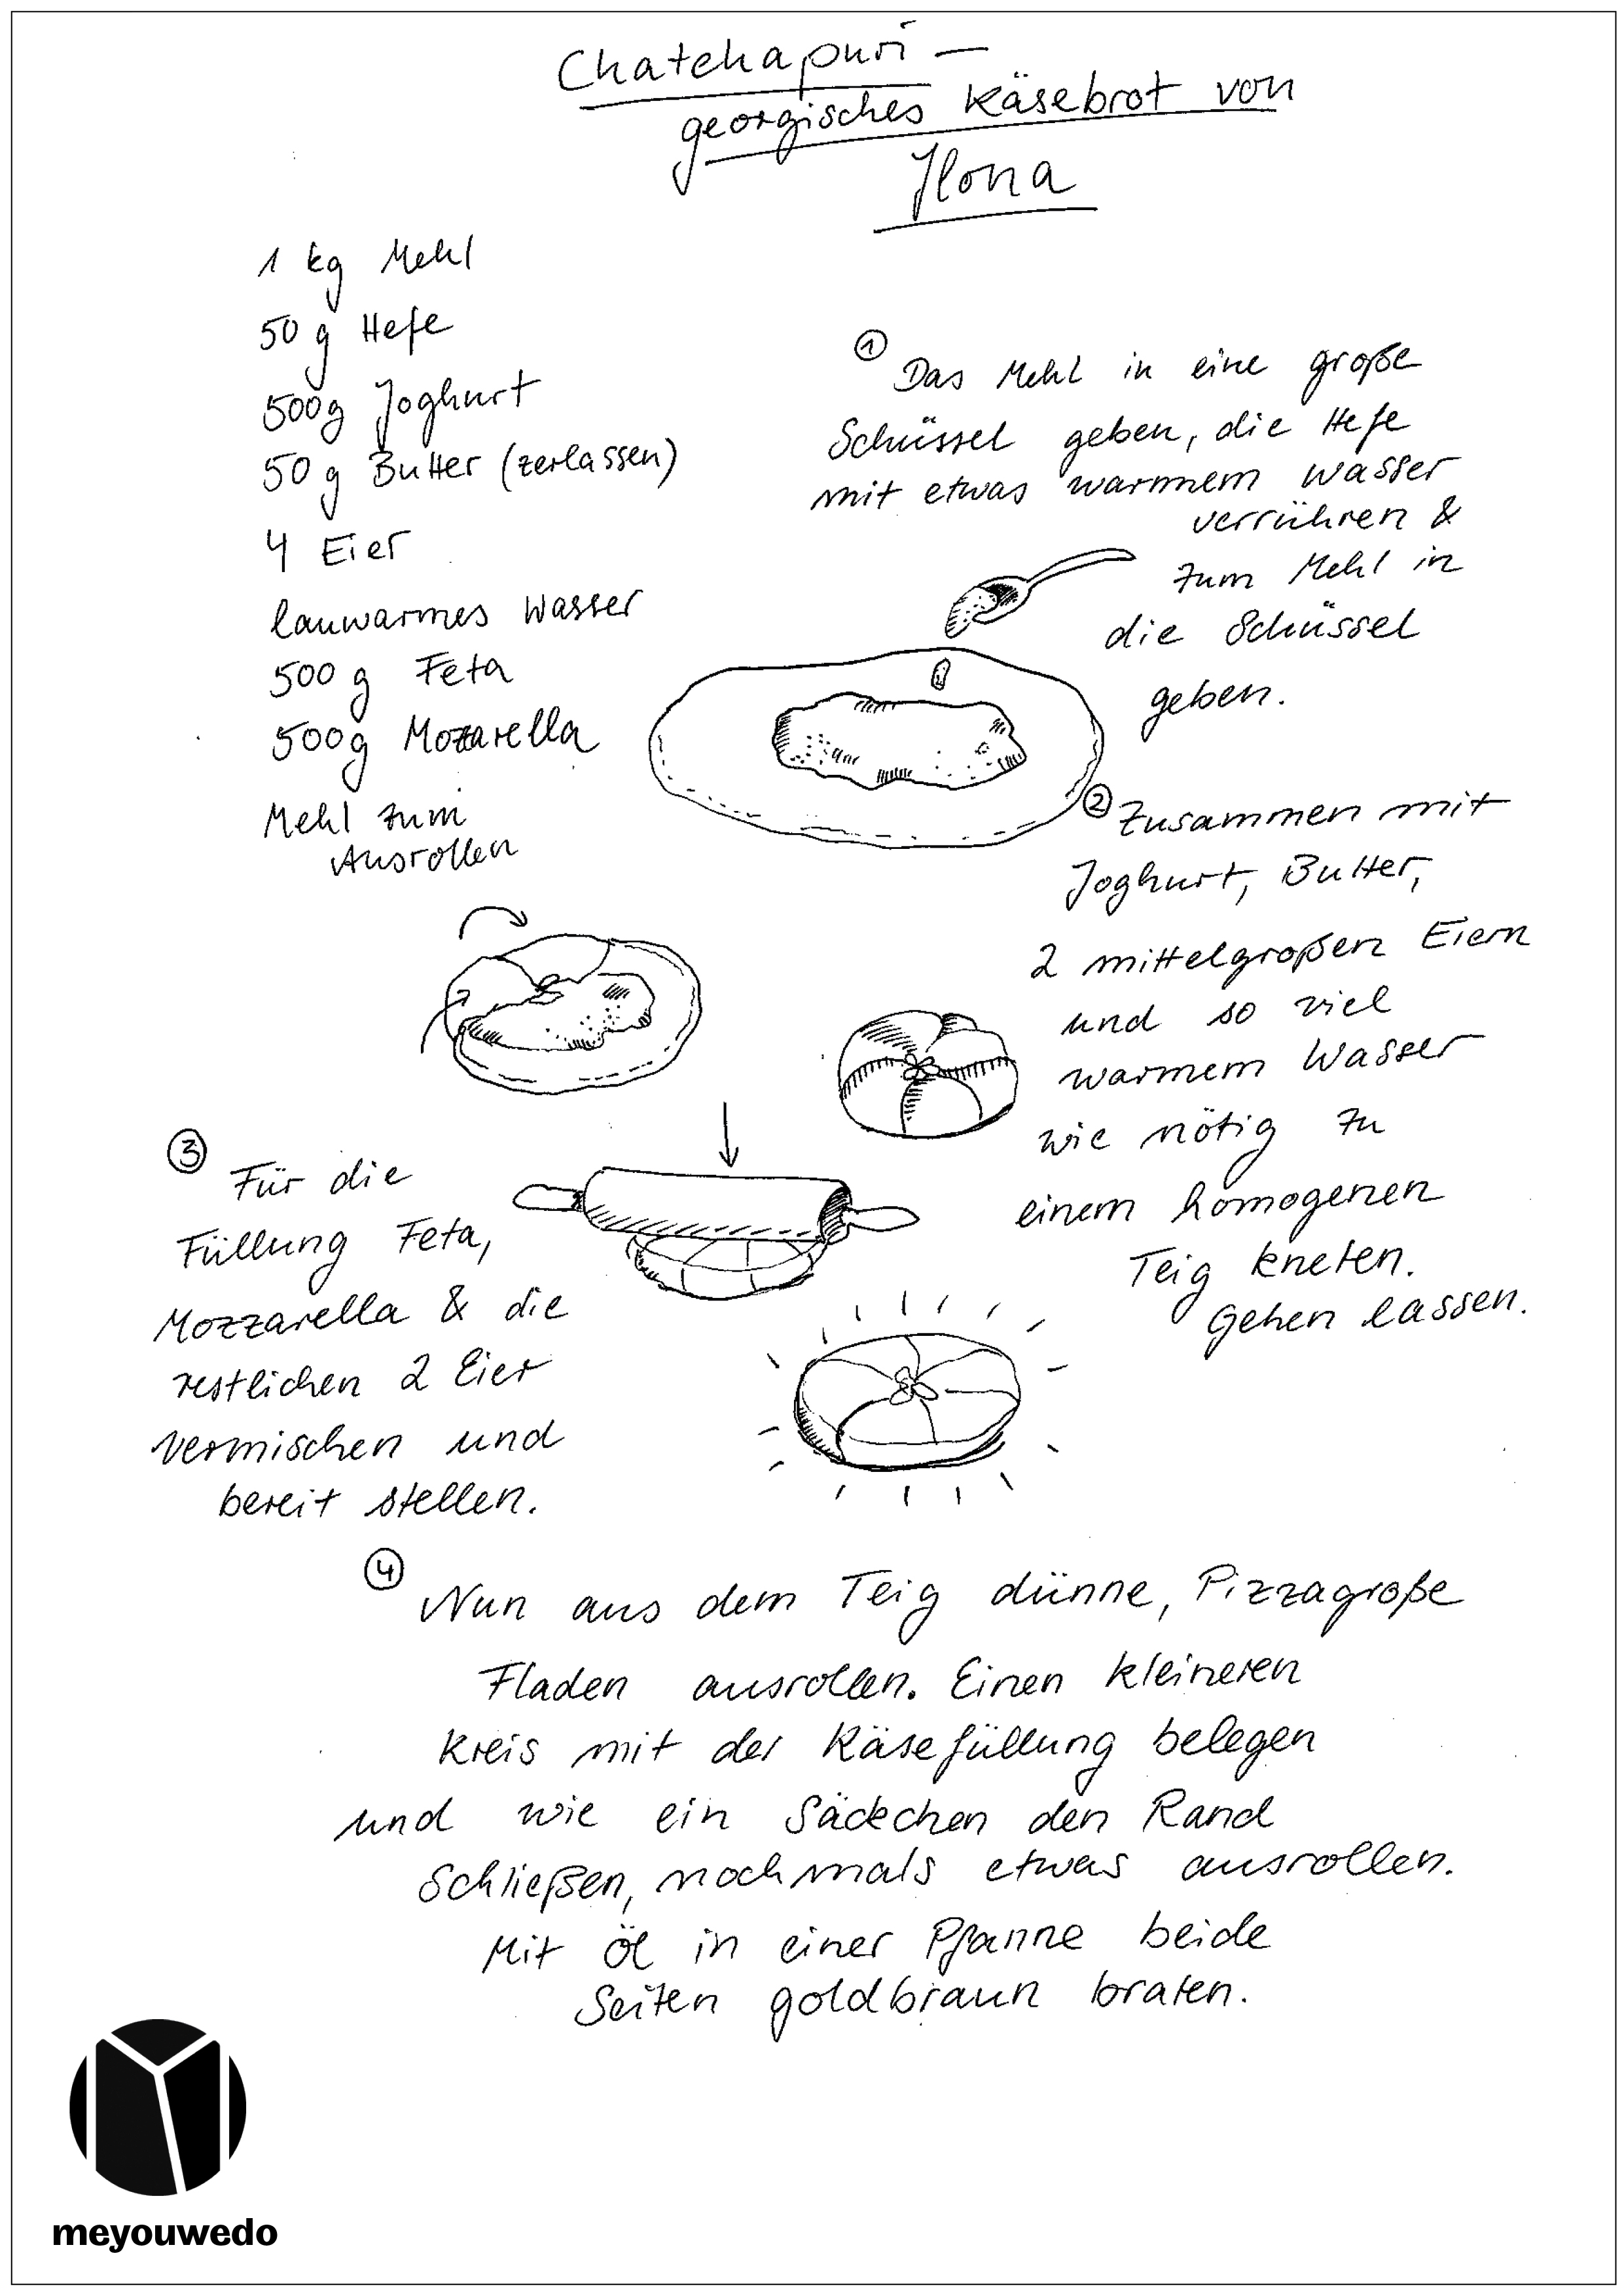 Chatchapuri –
georgisches Käsebrot von
Ilona
1 kg Mehl
50 g Hefe
500g Joghurt
50 g Butter (zerlassen)
4 Eier
lauwarmes Wasser
500 g Feta
500g Mozarella
Mehl zum
Ausrollen
① Das Mehl in eine große
Schüssel geben, die Hefe
mit etwas warmem Wasser
verrühren &
zum Mehl in
die Schüssel
geben.
② Zusammen mit
Joghurt, Butter,
2 mittelgroßen Eiern
und so viel
warmem Wasser
wie nötig zu
einem homogenen
Teig kneten.
Gehen lassen.
③ Für die
Füllung Feta,
Mozzarella & die
restlichen 2 Eier
vermischen und
bereit stellen.
④ Nun aus dem Teig dünne, Pizzagroße
Fladen ausrollen. Einen kleineren
Kreis mit der Käsefüllung belegen
und wie ein Säckchen den Rand
Schließen, nochmals etwas ausrollen.
Mit Öl in einer Pfanne beide
Seiten goldbraun braten.
meyouwedo